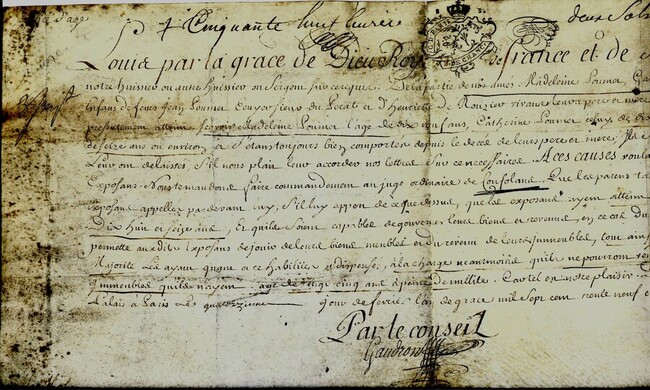 Cinquante huit livres
deux Sols
Louis par la grace de Dieu Roy de france et de
notre huissier ou autre huissier ou Sergent sur ce requis De la partie de nos amés Madeleine Pounier
Enfans de feues Jean Pounier et d'henriette de vivans leurs pere et mere
presentement atteint Sçavoir Madeleine Pounier l'age de dix ans, Catherine Pounier celuy de
de seize ans ou environ, et S'etans toujours bien comportés depuis le deced de leurs pere et mere,
Leur ont delaissés, S'il nous plait leur accorder nos lettres Sur ce necessaires. A ces causes
Exposans Nous te mandons faire commandement au juge ordinaire de Confolans, Que les parens
exposans appellez pardevant luy, S'il luy appert de ce que dessus, que les exposans ayent atteint
Dix huit et Seize ans, Et quils Soient capables de gouverner leurs biens et revenus, en ce cas
permette auxdits Exposans de jouir de leurs biens meubles et du revenu de leurs immeubles, tout ainsi
Majorité Les ayans quant a ce habilités et dispensés, a la charge neantmoins quils ne pourront
immeubles quils n'ayent age de vingt cinq ans a peine de nullité. Car tel est notre plaisir.
Palais à Paris Le quatorzieme jour de fevrier L'an de grace, mil Sept cent trente neuf
Par le conseil
Gaudron